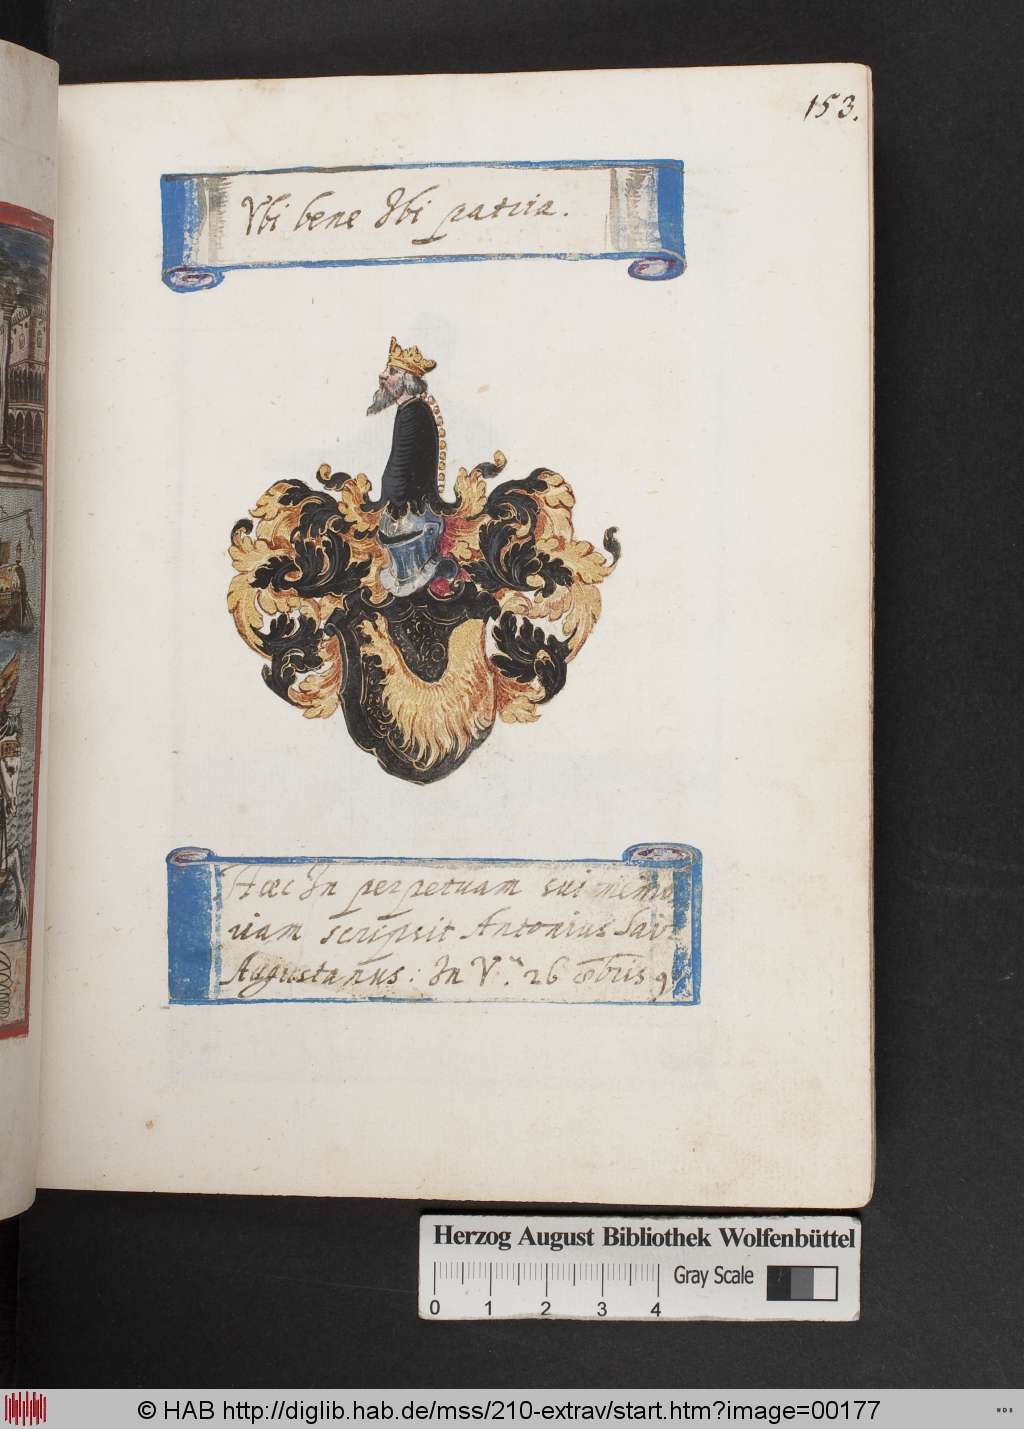 153.
Vbi bene Ibi patria.
Hæc In perpetuam sui memo
riam scripsit Antonius
Augustanus: In V.ᵃ 26 8bris 9
Herzog August Bibliothek Wolfenbüttel
Gray Scale
0 1 2 3 4
© HAB http://diglib.hab.de/mss/210-extrav/start.htm?image=00177